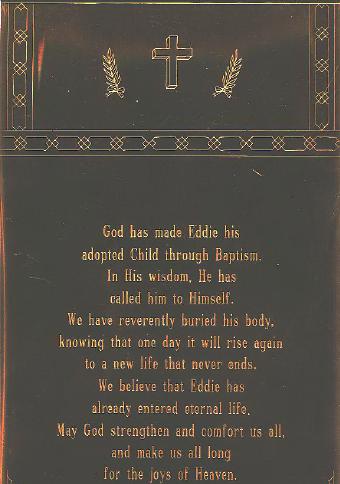 God has made Eddie his
adopted Child through Baptism.
In His wisdom, He has
called him to Himself.
We have reverently buried his body,
knowing that one day it will rise again
to a new life that never ends.
We believe that Eddie has
already entered eternal life.
May God strengthen and comfort us all,
and make us all long
for the joys of Heaven.